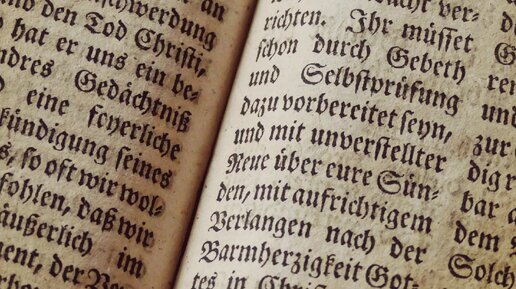 an
schwerdung
den Tod Christi,
hat er uns ein be-
ndres Gedächtniß
eine feyerliche
kündigung seines
s, so oft wir wol-
fohlen, daß wir
äußerlich im
ment, der
ver-
richten. Ihr müsset
schon durch Gebeth
und Selbstprüfung
dazu vorbereitet seyn,
und mit unverstellter
Reue über eure Sün-
den, mit aufrichtigem
Verlangen nach der
Barmherzigkeit Got-
tes in
den
ren
und
zur
dig
bar
dem
Solch